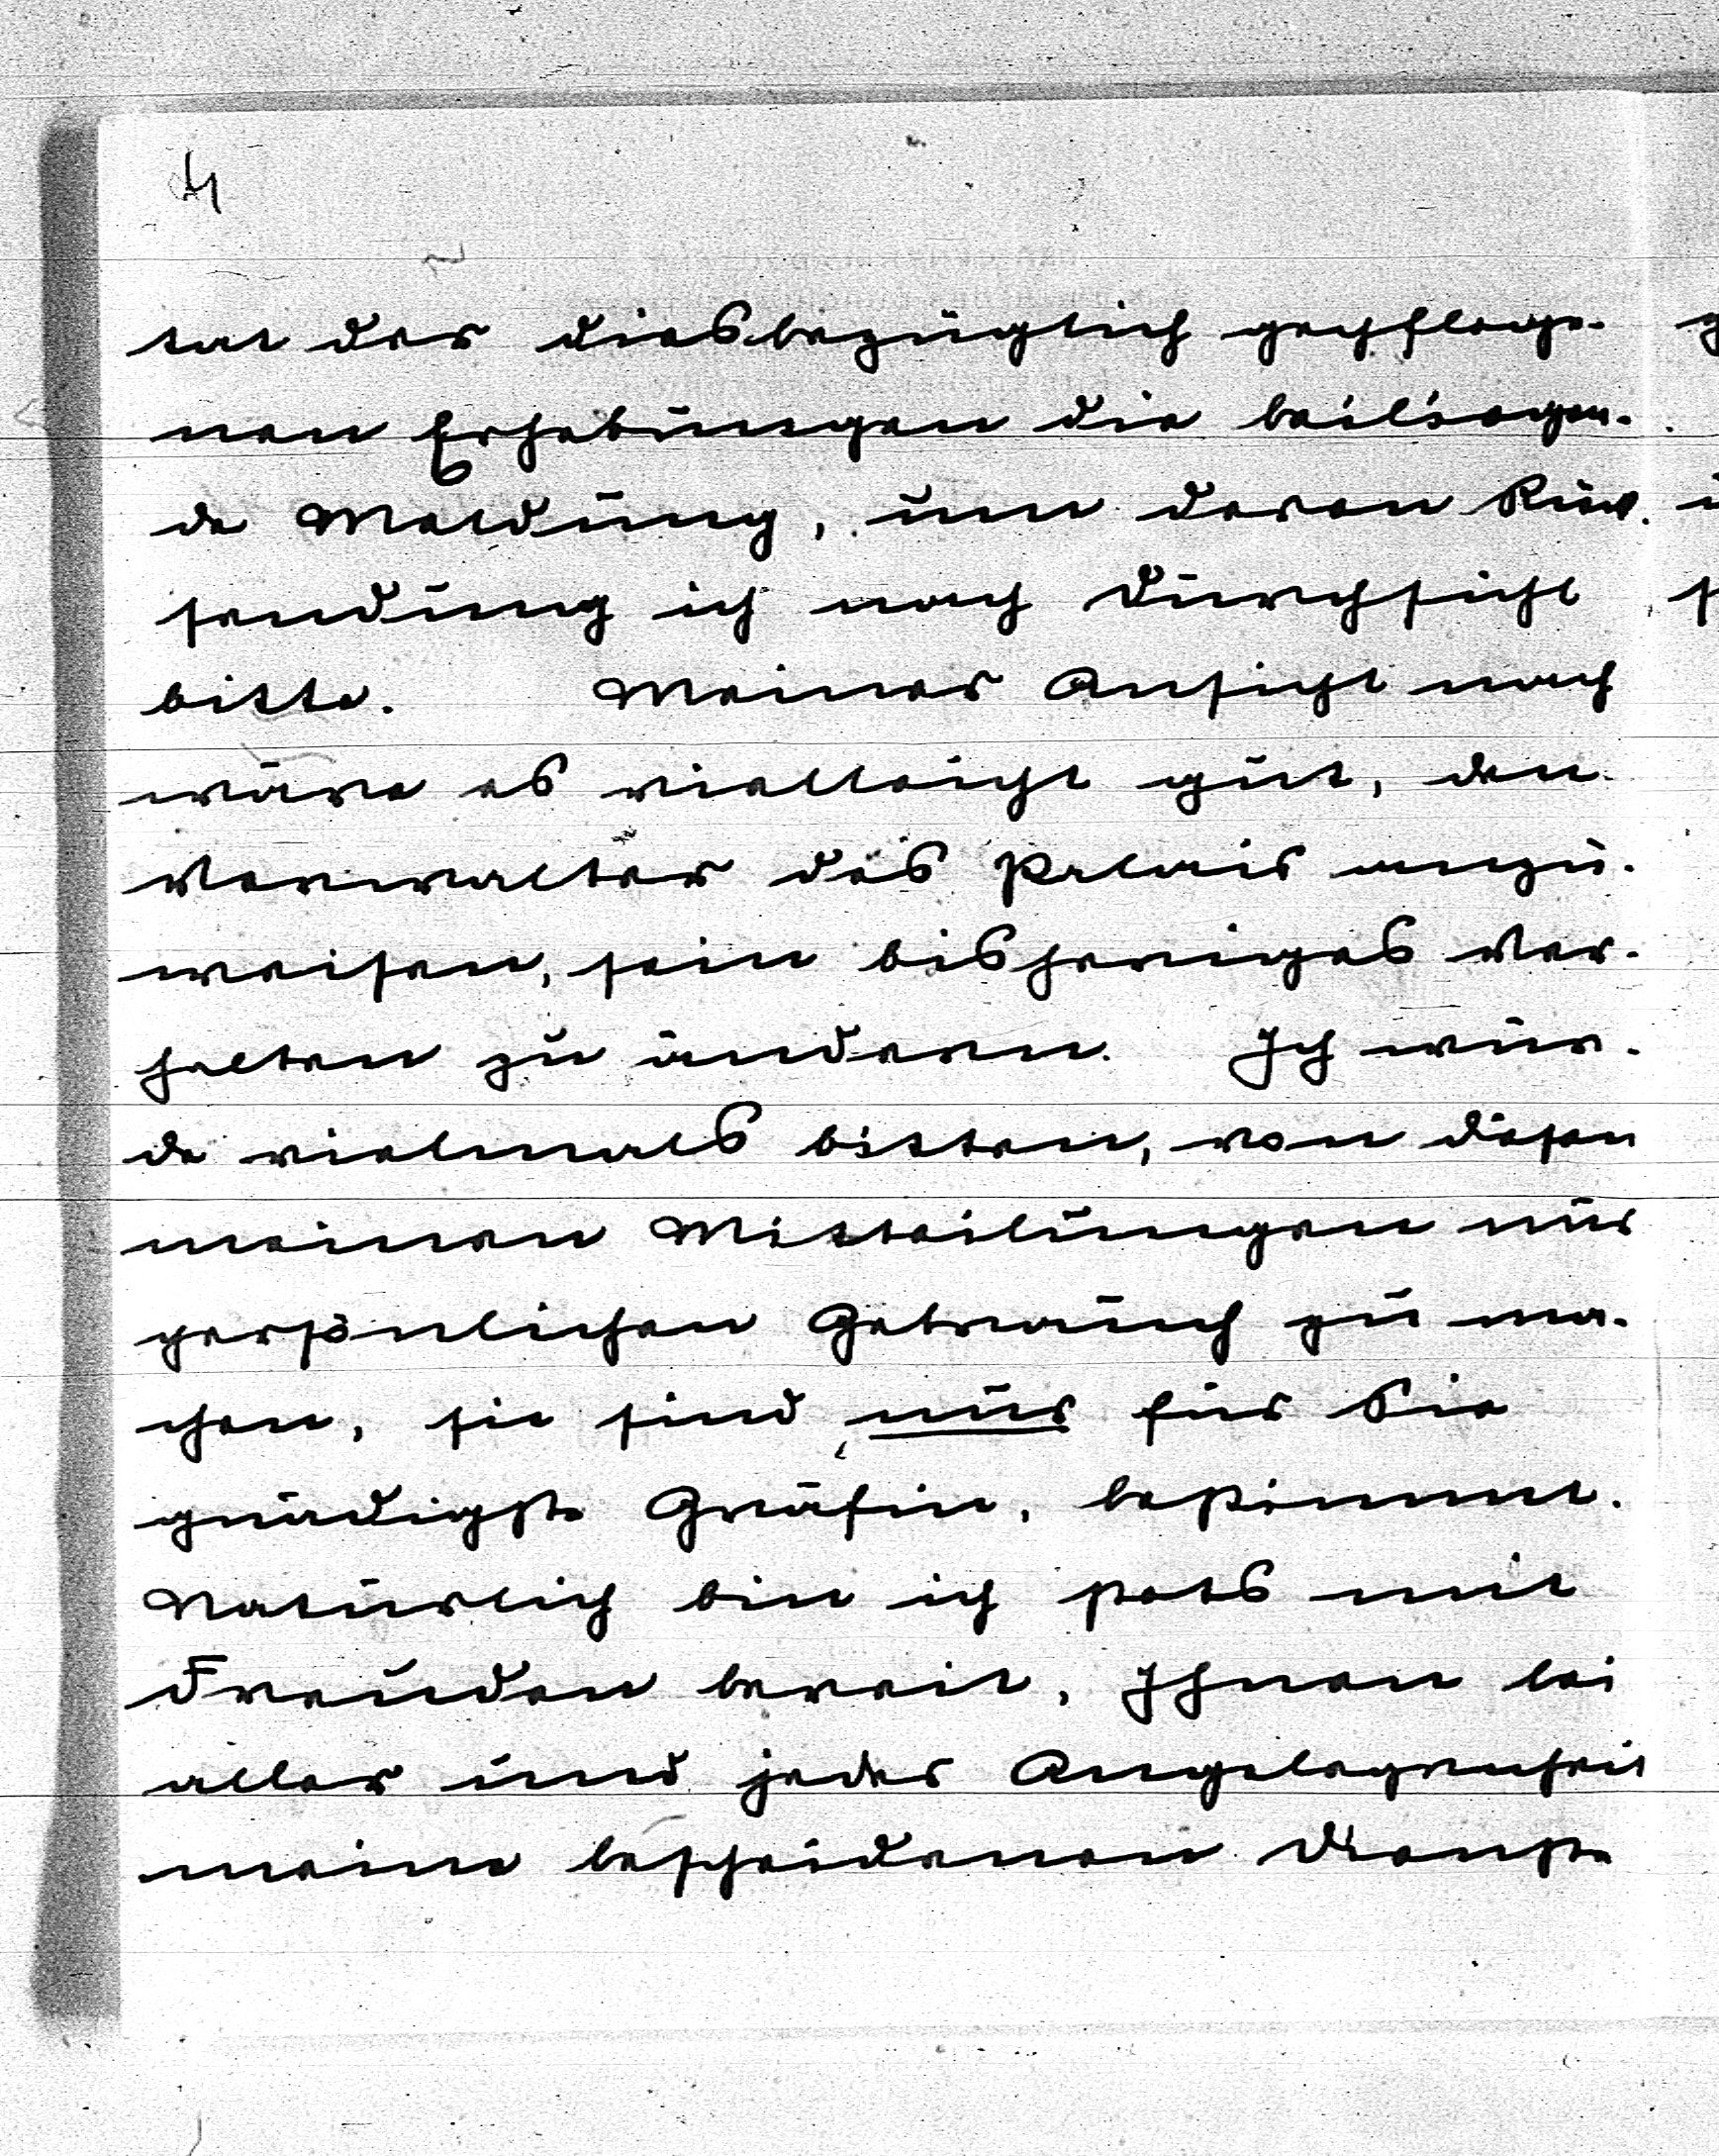 4
tat der diesbezüglich gepfloge-
nen Erhebungen die beiliegen-
de Meldung, um deren Rück-
sendung ich nach Durchsicht
bitte. Meiner Ansicht nach
wäre es vielleicht gut, den
Verwalter des Palais anzu-
weisen, sein bisheriges Ver-
halten zu ändern. Ich wür-
de vielmals bitten, von diesen
meinen Mitteilungen nur
persönlichen Gebrauch zu ma-
chen, sie sind nur für Sie
gnädigste Gräfin, bestimmt.
Natürlich bin ich stets mit
Freuden bereit, Ihnen bei
aller und jeder Angelegenheit
meine bescheidenen Dienste